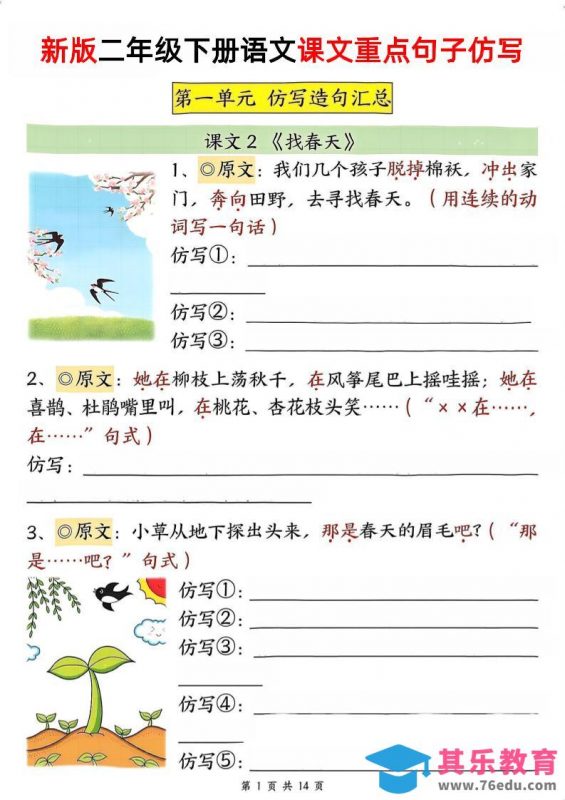 新版二年级下册语文课文重点句子仿写
第一单元 仿写造句汇总
课文2《找春天》
1、◎原文：我们几个孩子脱掉棉袄，冲出家
门，奔向田野，去寻找春天。（用连续的动
词写一句话）
仿写①：
仿写②：
仿写③：
2、◎原文：她在柳枝上荡秋千，在风筝尾巴上摇哇摇；她在
喜鹊、杜鹃嘴里叫，在桃花、杏花枝头笑……（“××在……，
在……”句式）
仿写：
3、◎原文：小草从地下探出头来，那是春天的眉毛吧？（“那
是……吧？”句式）
仿写①：
仿写②：
仿写③：
仿写④：
仿写⑤：
第 1 页 共 14 页
其乐教育
www.76edu.com